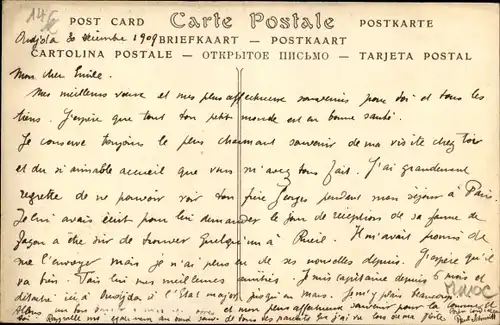 14€
POST CARD Carte Postale POSTKARTE
BRIEFKAART — POSTKAART
CARTOLINA POSTALE — ОТКРЫТОЕ ПИСЬМО — TARJETA POSTAL
Oudjda 30 Décembre 1909
Mon cher Emile.
Mes meilleurs vœux et mes plus affectueux souvenirs pour toi et tous les
tiens. J'espère que tout ton petit monde est en bonne santé.
Je conserve toujours le plus charmant souvenir de ma visite chez toi
et du si aimable accueil que vous m'avez tous fait. J'ai grandement
regretté de ne pouvoir voir ton frère Georges pendant mon séjour à Paris.
Je lui avais écrit pour lui demander le jour de réceptions de sa femme de
façon à être sûr de trouver quelqu'un à Rueil. Il m'avait promis de
me l'envoyer mais je n'ai plus eu de ses nouvelles depuis. J'espère qu'il
va bien. Fais lui mes meilleures amitiés. Je suis capitaine depuis 6 mois et
détaché ici à Oudjda à l'Etat major jusqu'en mars. Je m'y plais beaucoup
MAROC
Allons mon bon et mon plus affectueux souvenir pour
toi Rappelle moi au bon de tous tes parents